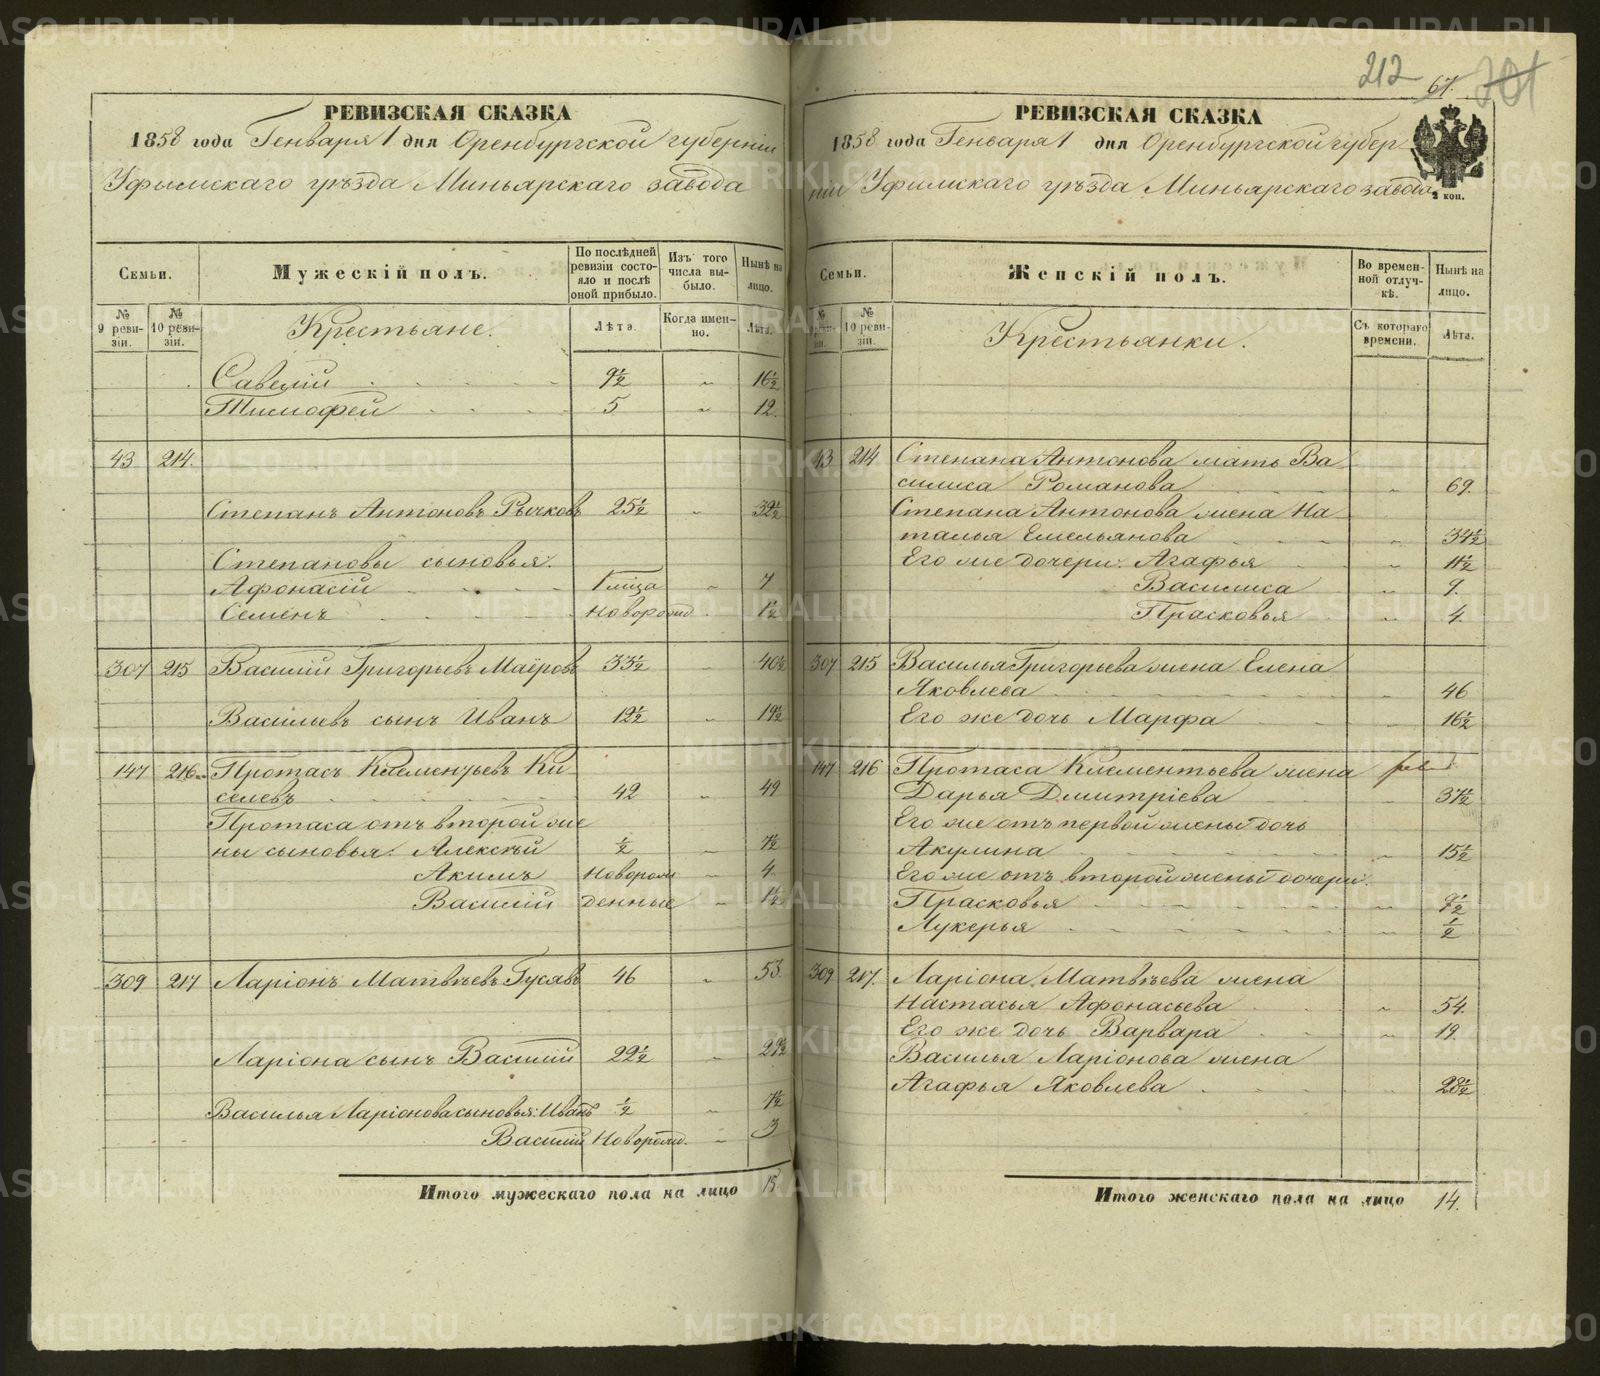 212 67. 201
РЕВИЗСКАЯ СКАЗКА
1858 года Генваря 1 дня Оренбургской губерніи
Уфимскаго уѣзда Миньярскаго завода
Семьи.
Мужескій полъ.
По послѣдней ревизіи состояло и послѣ оной прибыло.
Изъ того числа выбыло.
Нынѣ на лицо.
№ 9 ревизіи.
№ 10 ревизіи.
Крестьяне.
Лѣта.
Когда именно.
Лѣта.
Савелій 9½ „ 16½
Тимофей 5 „ 12.
43 214.
Степанъ Антоновъ Рычковъ 25½ „ 32½
Степановы сыновья.
Афонасій „ 7
Семенъ новорожд. 1½
307 215 Василій Григорьевъ Маіоровъ 33½ 40½
Васильевъ сынъ Иванъ 12½ „ 19½
147 216 Протасъ Клементьевъ Ки
селевъ 42 „ 49
Протаса отъ второй же
ны сыновья. Алексѣй ½ „ 7½
Акимъ новорож „ 4.
Василій денные „ 1½
309 217 Ларіонъ Матвѣевъ Гусявъ 46 „ 53.
Ларіона сынъ Василій 22½ „ 29½
Василья Ларіонова сыновья: Иванъ ½ „ 7½
Василій новорожд. „ 3
Итого мужескаго пола на лицо 15.
РЕВИЗСКАЯ СКАЗКА
1858 года Генваря 1 дня Оренбургской губер
ніи Уфимскаго уѣзда Миньярскаго завода,
2 коп.
Семьи.
Женскій полъ.
Во временной отлучкѣ.
Нынѣ на лицо.
№ 9 ревизіи.
№ 10 ревизіи.
Крестьянки.
Съ котораго времени.
Лѣта.
43 214 Степана Антонова мать Ва
силиса Романова „ 69.
Степана Антонова жена На
талья Емельянова „ 34½
Его же дочери: Агафья „ 11½
Василиса „ 9.
Прасковья „ 4.
307 215 Василья Григорьева жена Елена
Яковлева „ 46
Его же дочь Марфа „ 16½
147 216 Протаса Клементьева жена
Дарья Дмитріева 37½
Его же отъ первой жены дочь
Акулина „ 15½
Его же отъ второй жены дочери:
Прасковья „ 9½
Лукерья „ ½
309 217. Ларіона Матвѣева жена
Настасья Афонасьева „ 54.
Его же дочь Варвара „ 19.
Василья Ларіонова жена
Агафья Яковлева 28½
Итого женскаго пола на лицо 14.
METRIKI.GASO-URAL.RU